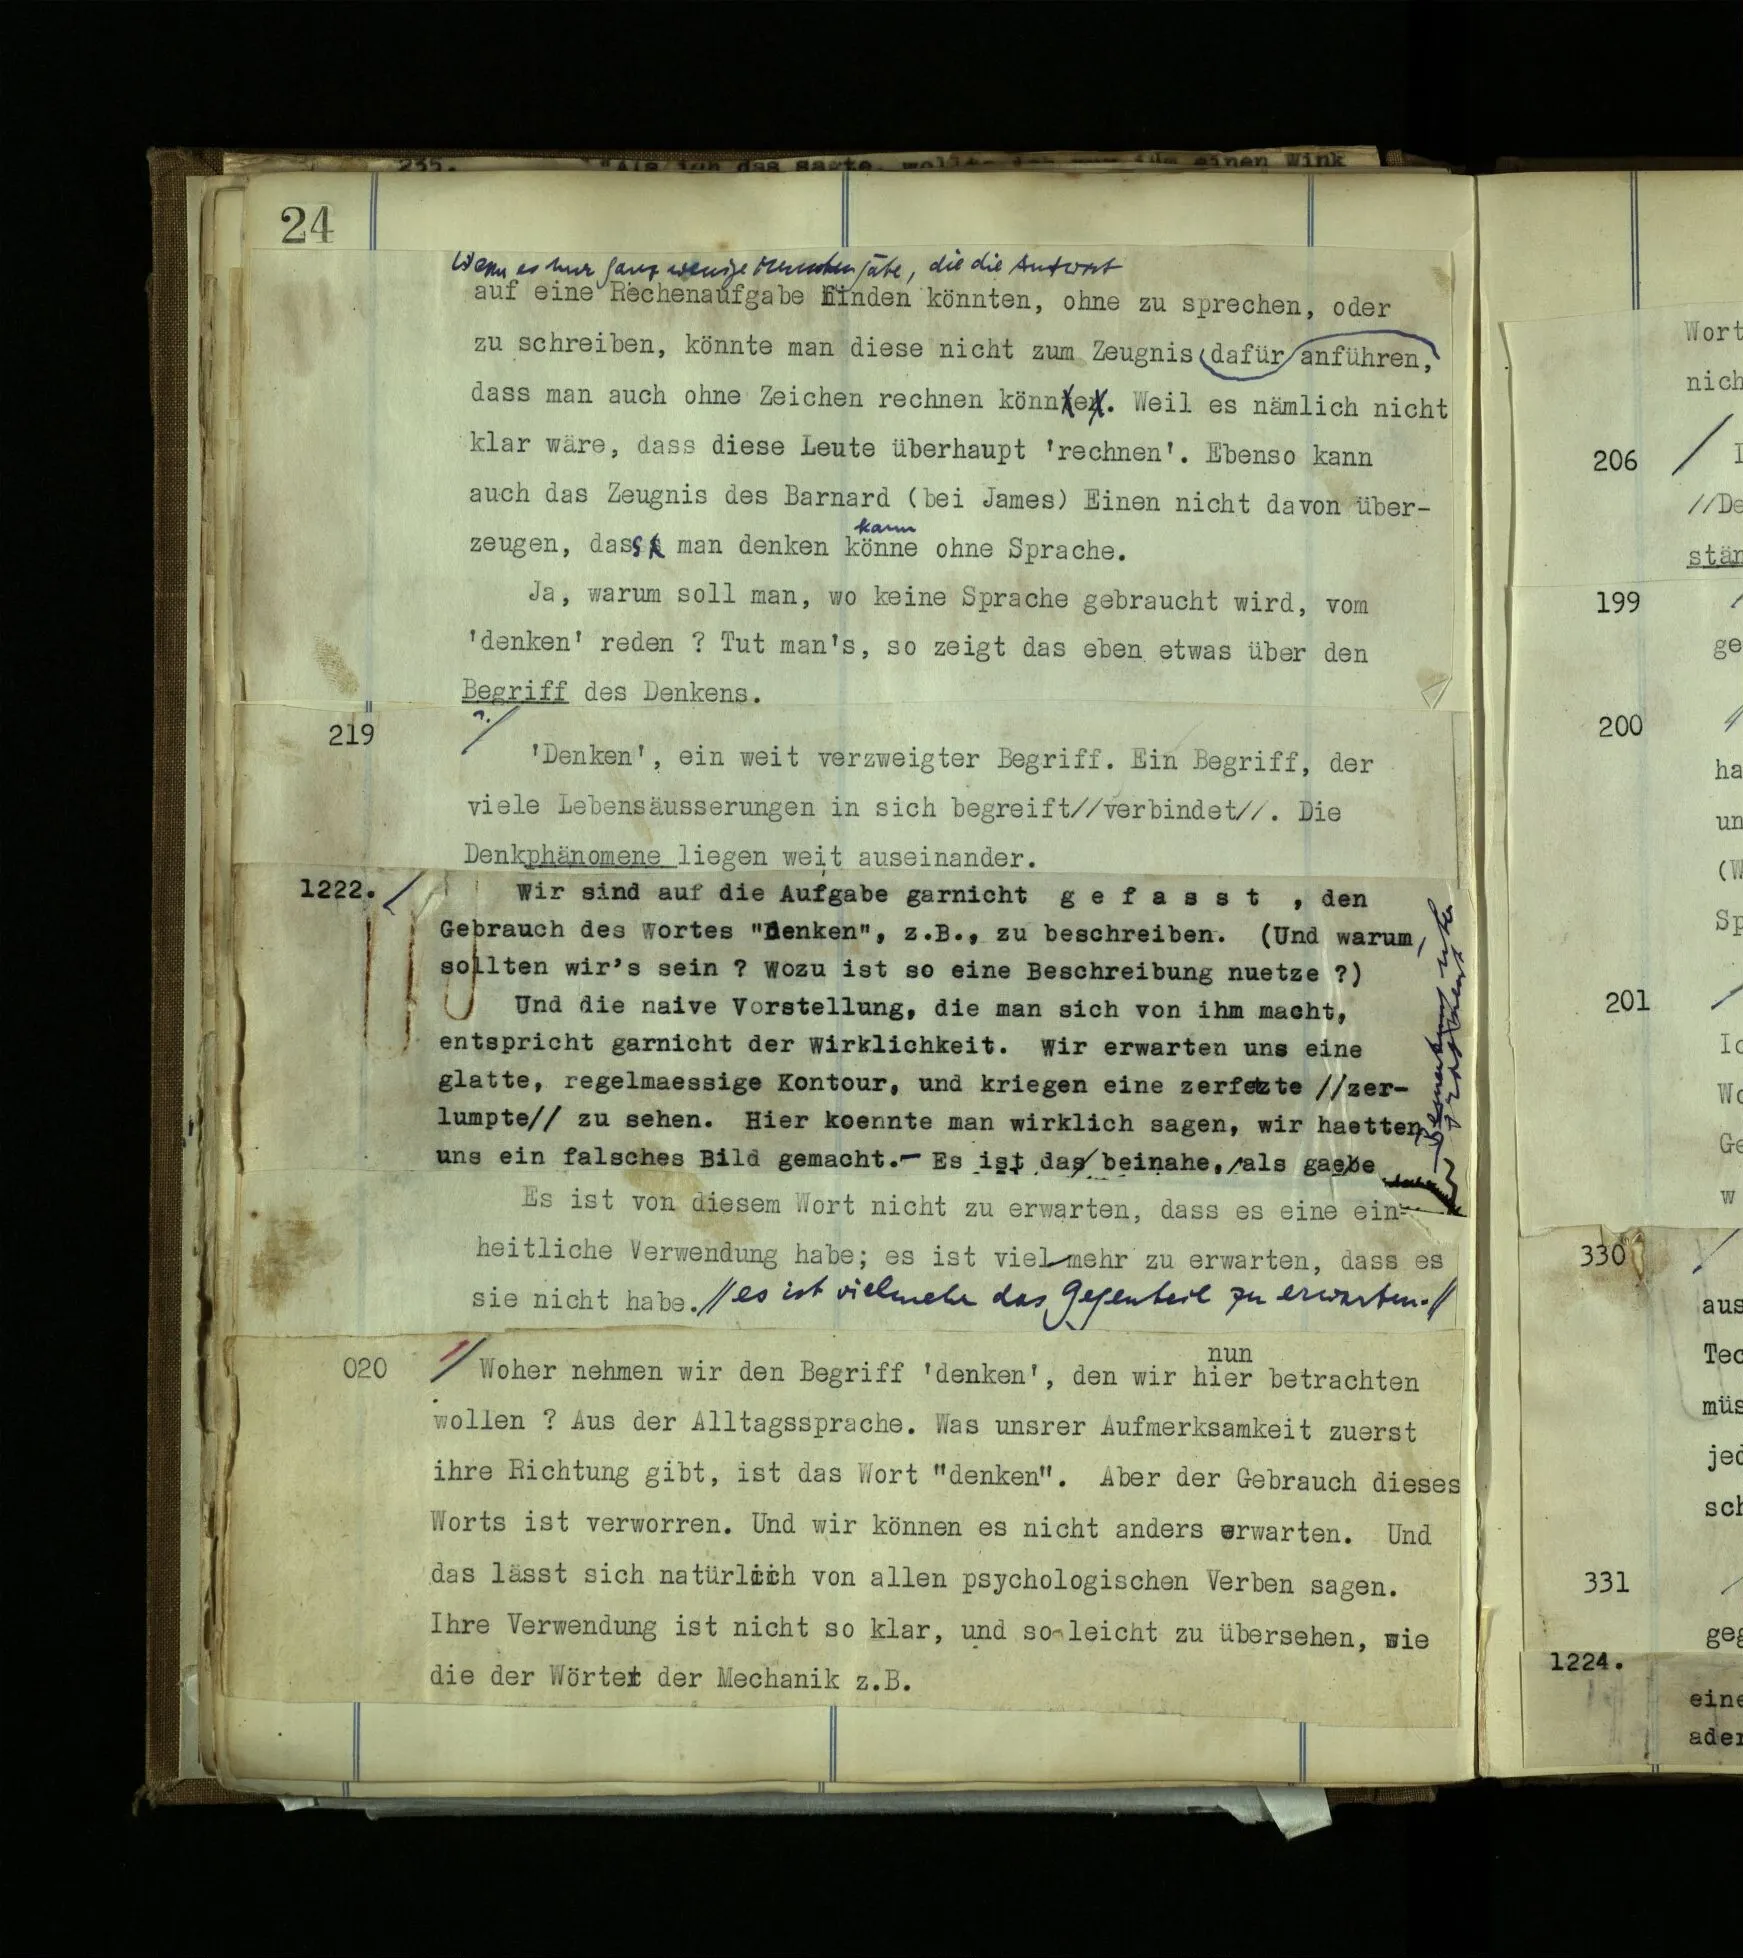 235. "Als ich das sagte, wollte ich nur ihm einen Wink
24
Wenn es nur ganz wenige Menschen gäbe, die die Antwort
auf eine Rechenaufgabe finden könnten, ohne zu sprechen, oder
zu schreiben, könnte man diese nicht zum Zeugnis dafür anführen,
dass man auch ohne Zeichen rechnen könne. Weil es nämlich nicht
klar wäre, dass diese Leute überhaupt 'rechnen'. Ebenso kann
auch das Zeugnis des Barnard (bei James) Einen nicht davon über-
kann
zeugen, dass man denken könne ohne Sprache.
Ja, warum soll man, wo keine Sprache gebraucht wird, vom
'denken' reden ? Tut man's, so zeigt das eben etwas über den
Begriff des Denkens.
219 ?/
'Denken', ein weit verzweigter Begriff. Ein Begriff, der
viele Lebensäusserungen in sich begreift//verbindet//. Die
Denkphänomene liegen weit auseinander.
1222. / Wir sind auf die Aufgabe garnicht g e f a s s t , den
Gebrauch des Wortes "denken", z.B., zu beschreiben. (Und warum
sollten wir's sein ? Wozu ist so eine Beschreibung nuetze ?)
Und die naive Vorstellung, die man sich von ihm macht,
entspricht garnicht der Wirklichkeit. Wir erwarten uns eine
glatte, regelmaessige Kontour, und kriegen eine zerfetzte //zer-
lumpte// zu sehen. Hier koennte man wirklich sagen, wir haetten
uns ein falsches Bild gemacht.- Es ist das beinahe, als gaebe
Es ist von diesem Wort nicht zu erwarten, dass es eine ein-
heitliche Verwendung habe; es ist vielmehr zu erwarten, dass es
sie nicht habe. //es ist vielmehr das Gegenteil zu erwarten.//
020 / nun
Woher nehmen wir den Begriff 'denken', den wir hier betrachten
wollen ? Aus der Alltagssprache. Was unsrer Aufmerksamkeit zuerst
ihre Richtung gibt, ist das Wort "denken". Aber der Gebrauch dieses
Worts ist verworren. Und wir können es nicht anders erwarten. Und
das lässt sich natürlich von allen psychologischen Verben sagen.
Ihre Verwendung ist nicht so klar, und so leicht zu übersehen, wie
die der Wörter der Mechanik z.B.
Wort
nich
206 /
//De
stän
199
ge
200
ha
un
(W
Sp
201
Ic
Wo
Ge
w
330 /
aus
Tec
müs
jed
sch
331 /
geg
1224.
eine
ader